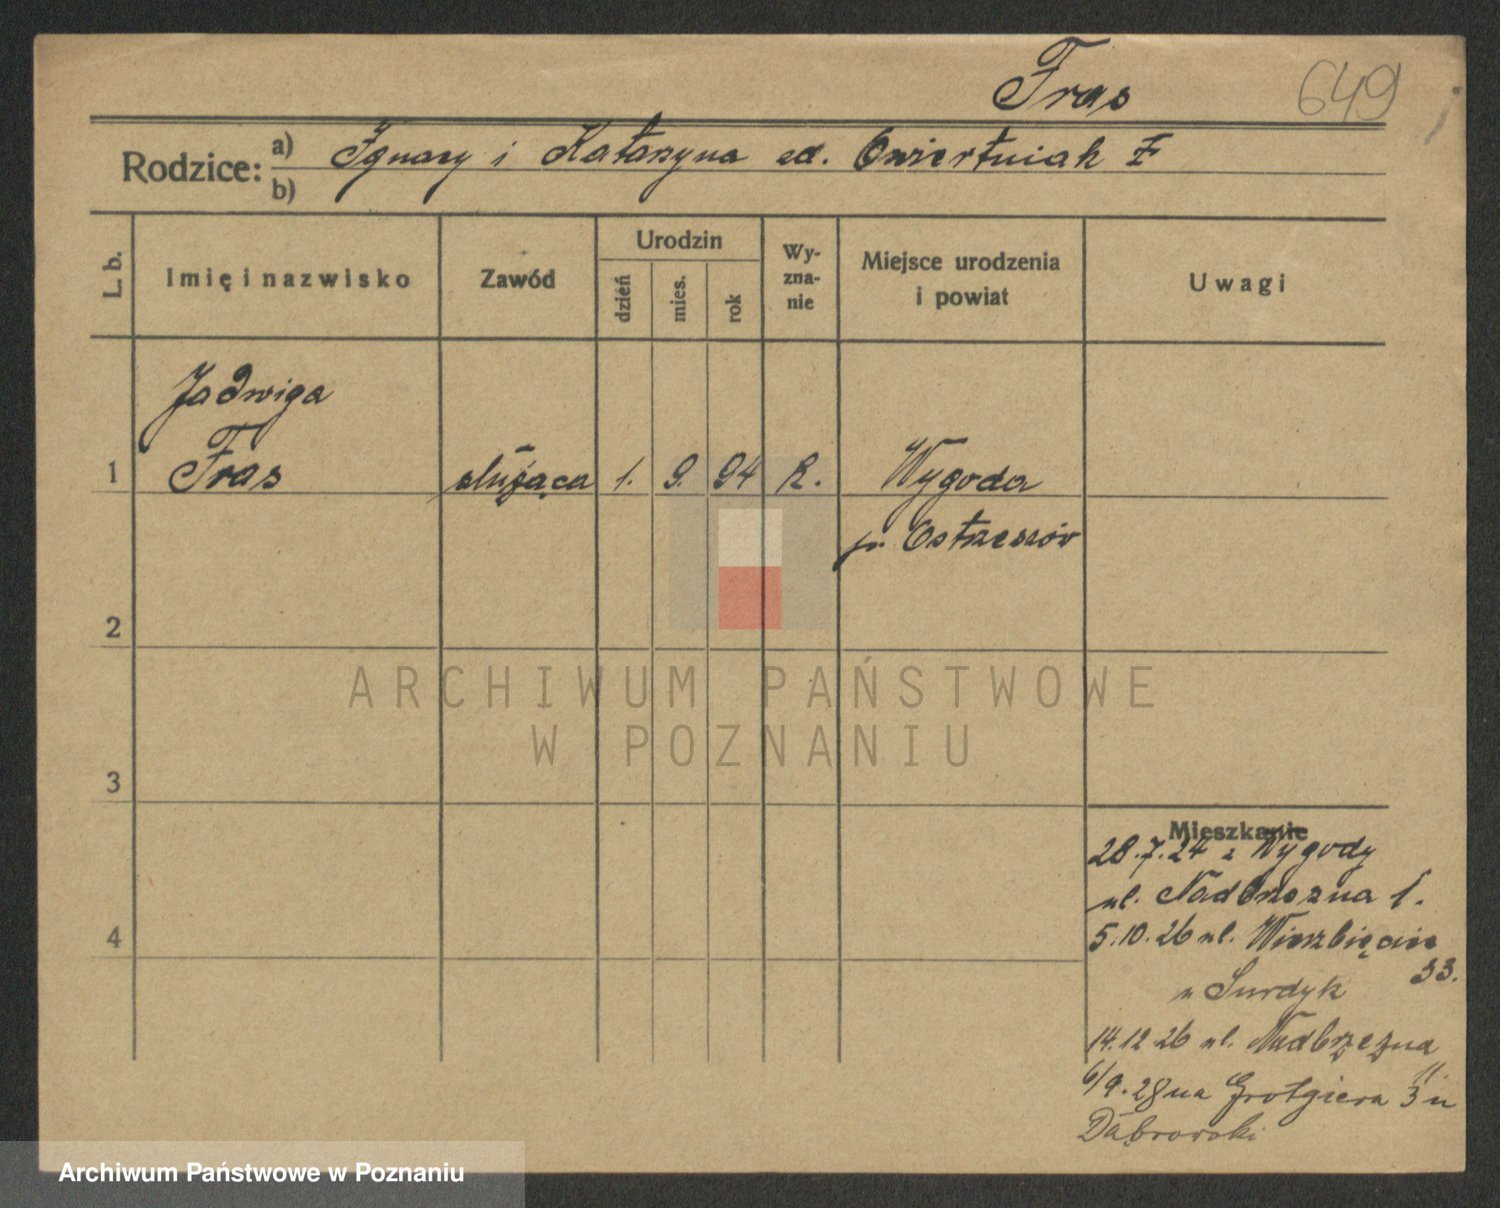 Fras
649
Rodzice: a) Ignacy i Katarzyna zd. Ćwiertniak
b)
L. b.
Imię i nazwisko
Zawód
Urodzin
dzień
mies.
rok
Wy-
zna-
nie
Miejsce urodzenia
i powiat
Uwagi
Jadwiga
1 Fras służąca 1. 9. 94 R. Wygoda
p. Ostrzeszów
2
3
4
Mieszkanie
28.7.24 z Wygody
ul. Nadbrzezna 1.
5.10.26 ul. Wierzbięcice
33.
u Surdyk
14.12.26 ul. Nadbrzeżna
11.
6/9.28 na Grotgiera 3 u
Dąbrowski
ARCHIWUM PAŃSTWOWE
W POZNANIU
Archiwum Państwowe w Poznaniu